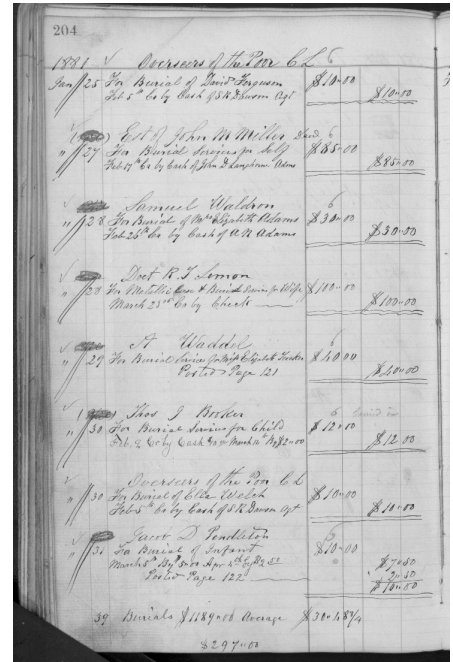 204
1881 Overseers of the Poor C L 6
Jan 25 For Burial of David Ferguson $10-00
Feb 5th Cr by Cash of S R Dawson Agt $10-00
Est of John M Miller Decd 6
" 27 For Burial Services for Self $85-00
Feb 17th Cr by Cash of John D Langhorne Adms $85-00
Samuel Waldron 6
" 28 For Burial of Mrs Elizabeth Adams $30-00
Feb 26th Cr by Cash of A R Adams $30-00
Doct R J Lemon
" 28 For Metallic Case & Burial Service for Wife $100-00
March 23rd Cr by Check $100-00
A Waddel 6
" 29 For Burial Service for Miss Elizabeth Tucker $40 00
Posted Page 121 $40-00
Thos J Booker 6
" 30 For Burial Service for Child $12-00
Feb 9 Cr by Cash March 12th By $2-00 $12 00
Overseers of the Poor C L
" 30 For Burial of Ella Welch $10-00
Feb 5th Cr by Cash of S R Dawson Agt $10-00
Jacob D Pendleton 6
" 31 For Burial of Infant $10-00
March 5th By 5-00 Apr 4th By $2.50 $7-50
Posted Page 122 2-50
$10-00
39 Burials $1189-00 Average $30-48 2/4
$297-00